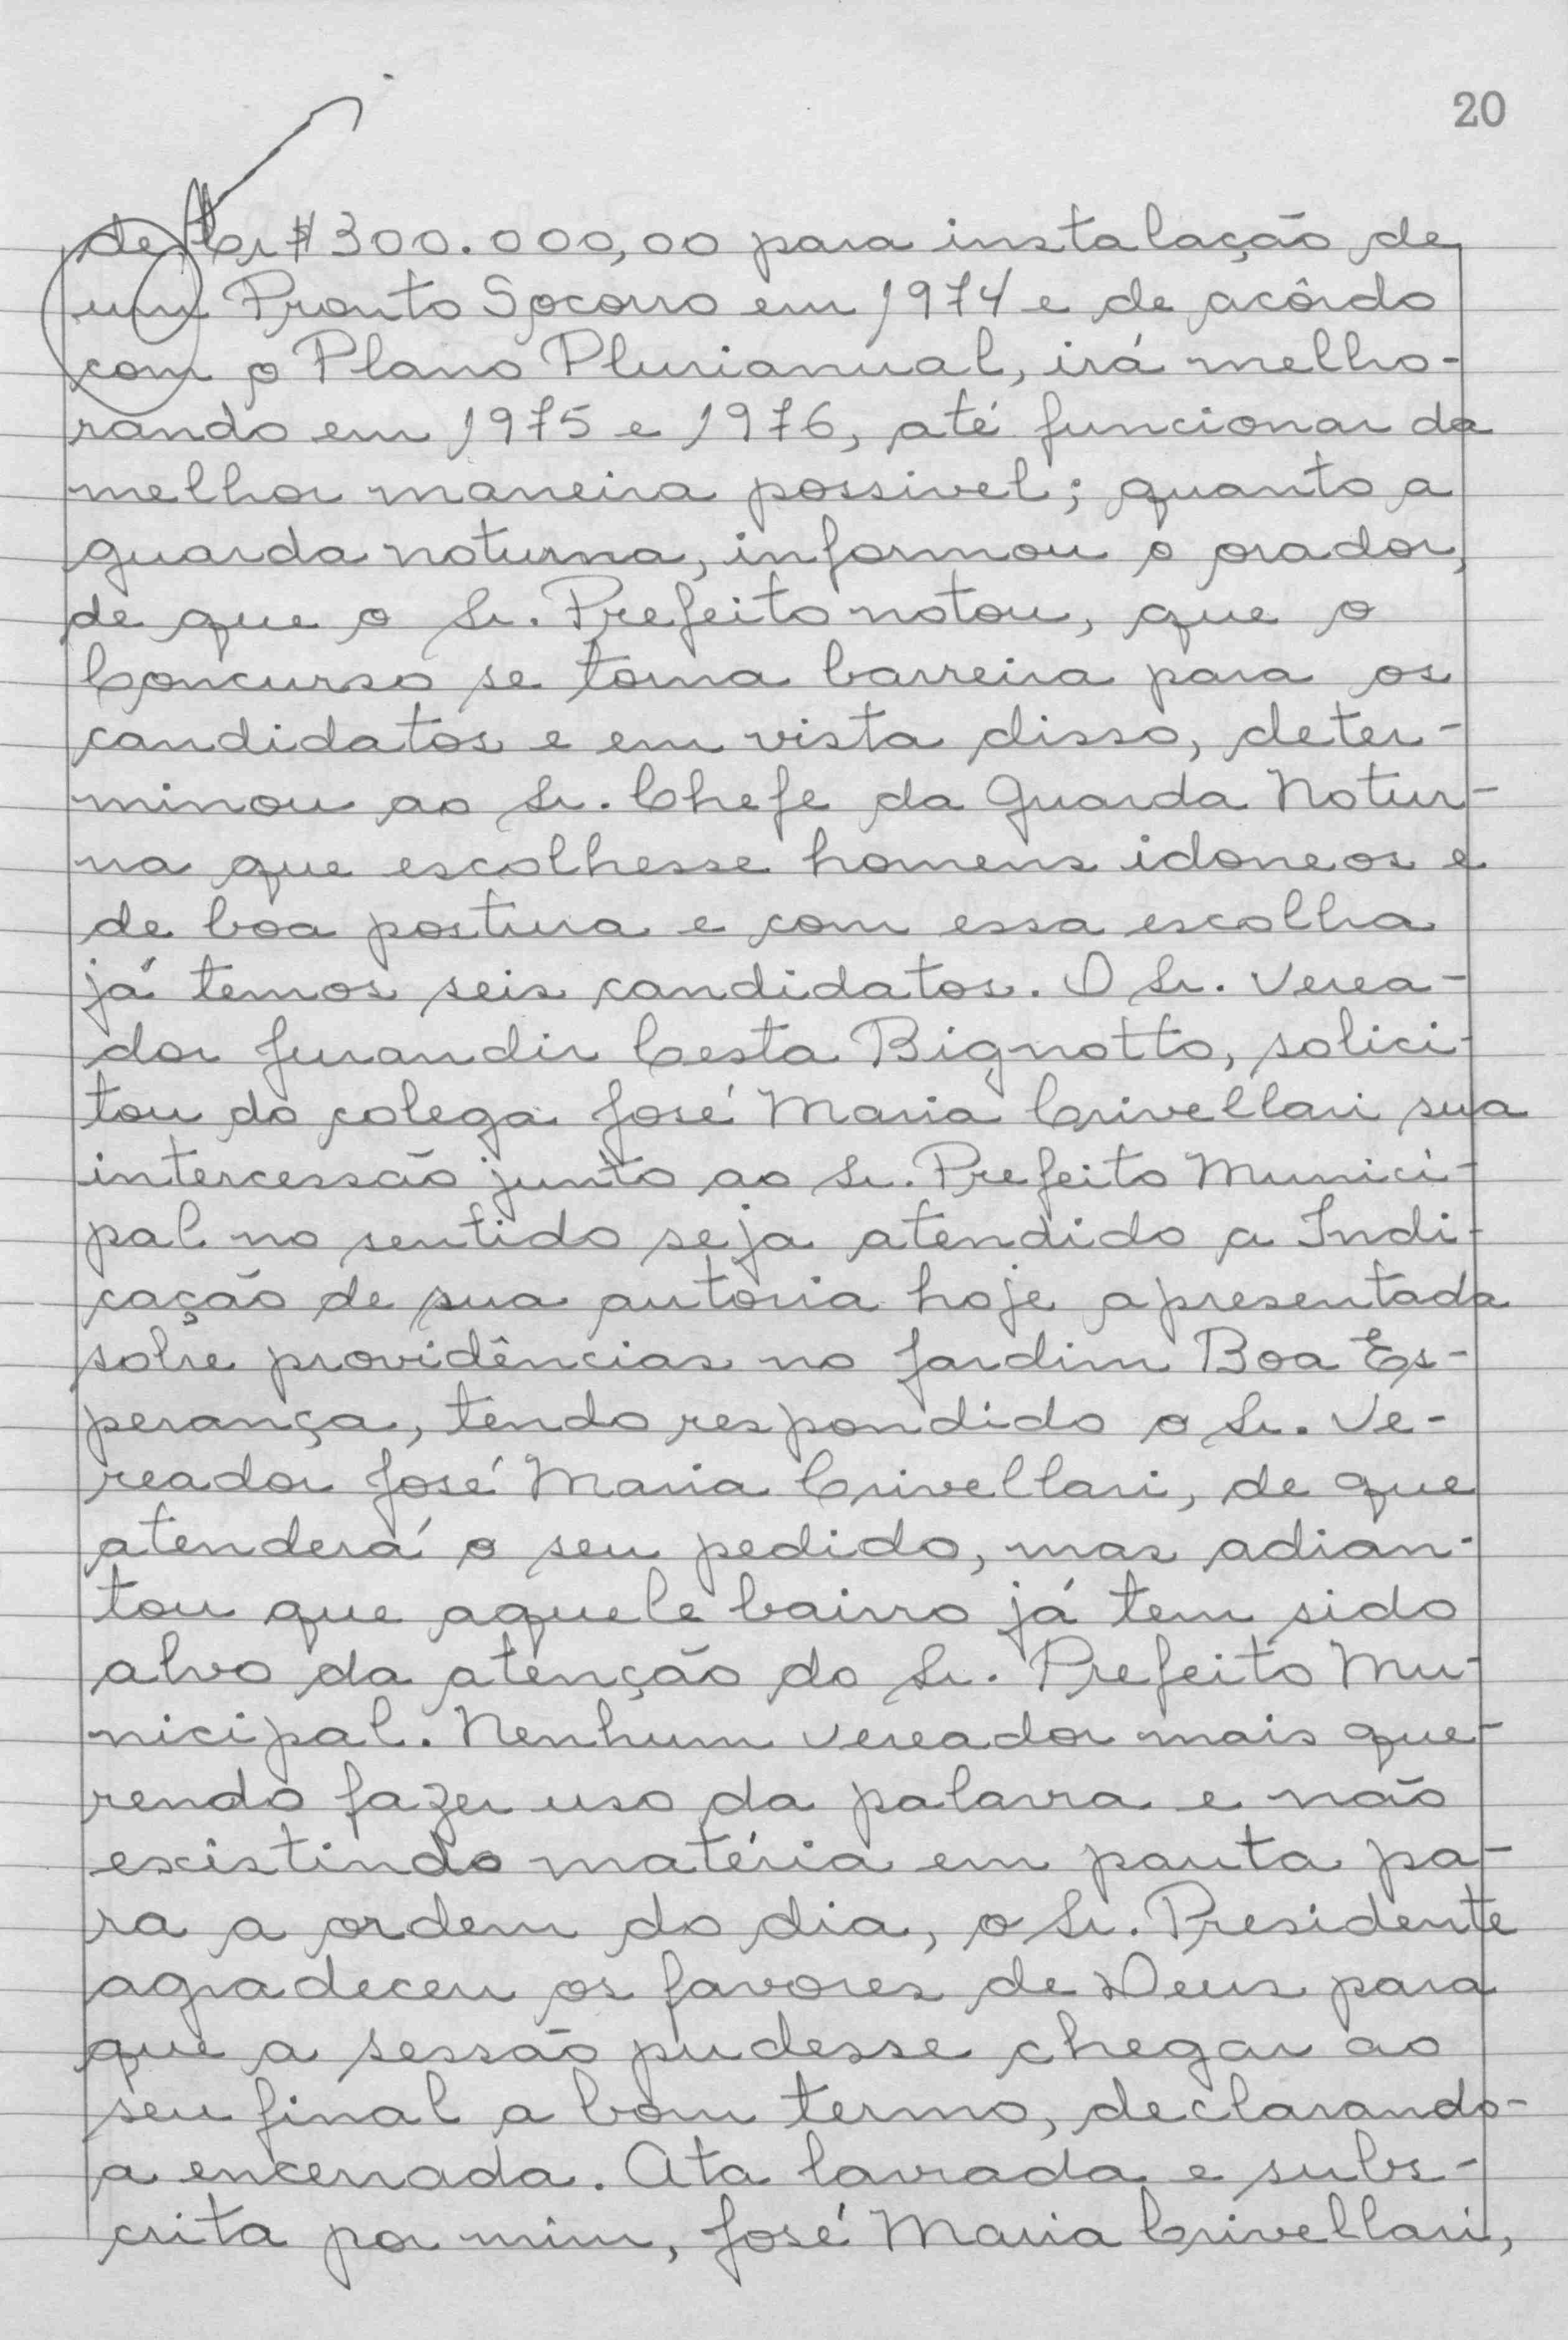 20
de Cr$300.000,00 para instalação de
um Pronto Socorro em 1974 e de acôrdo
com o Plano Plurianual, irá melho-
rando em 1975 e 1976, até funcionar da
melhor maneira possivel; quanto a
guarda noturna, informou o orador,
de que o Sr. Prefeito notou, que o
Concurso se torna barreira para os
candidatos e em vista disso, deter-
minou ao Sr. Chefe da Guarda Notur-
na que escolhesse homens idoneos e
de boa postura e com essa escolha
já temos seis candidatos. O Sr. Verea-
dor Jurandir Cesta Bignotto, solici-
tou do colega José Maria Crivellari sua
intercessão junto ao Sr. Prefeito Munici-
pal no sentido seja atendido a Indi-
cação de sua autoria hoje apresentada
sobre providências no Jardim Boa Es-
perança, tendo respondido o Sr. Ve-
reador José Maria Crivellari, de que
atenderá o seu pedido, mas adian-
tou que aquele bairro já tem sido
alvo da atenção do Sr. Prefeito Mu-
nicipal. Nenhum vereador mais que-
rendo fazer uso da palavra e não
existindo matéria em pauta pa-
ra a ordem do dia, o Sr. Presidente
agradeceu os favores de Deus para
que a sessão pudesse chegar ao
seu final a bom termo, declarando-
a encerrada. Ata lavrada e subs-
crita por mim, José Maria Crivellari,